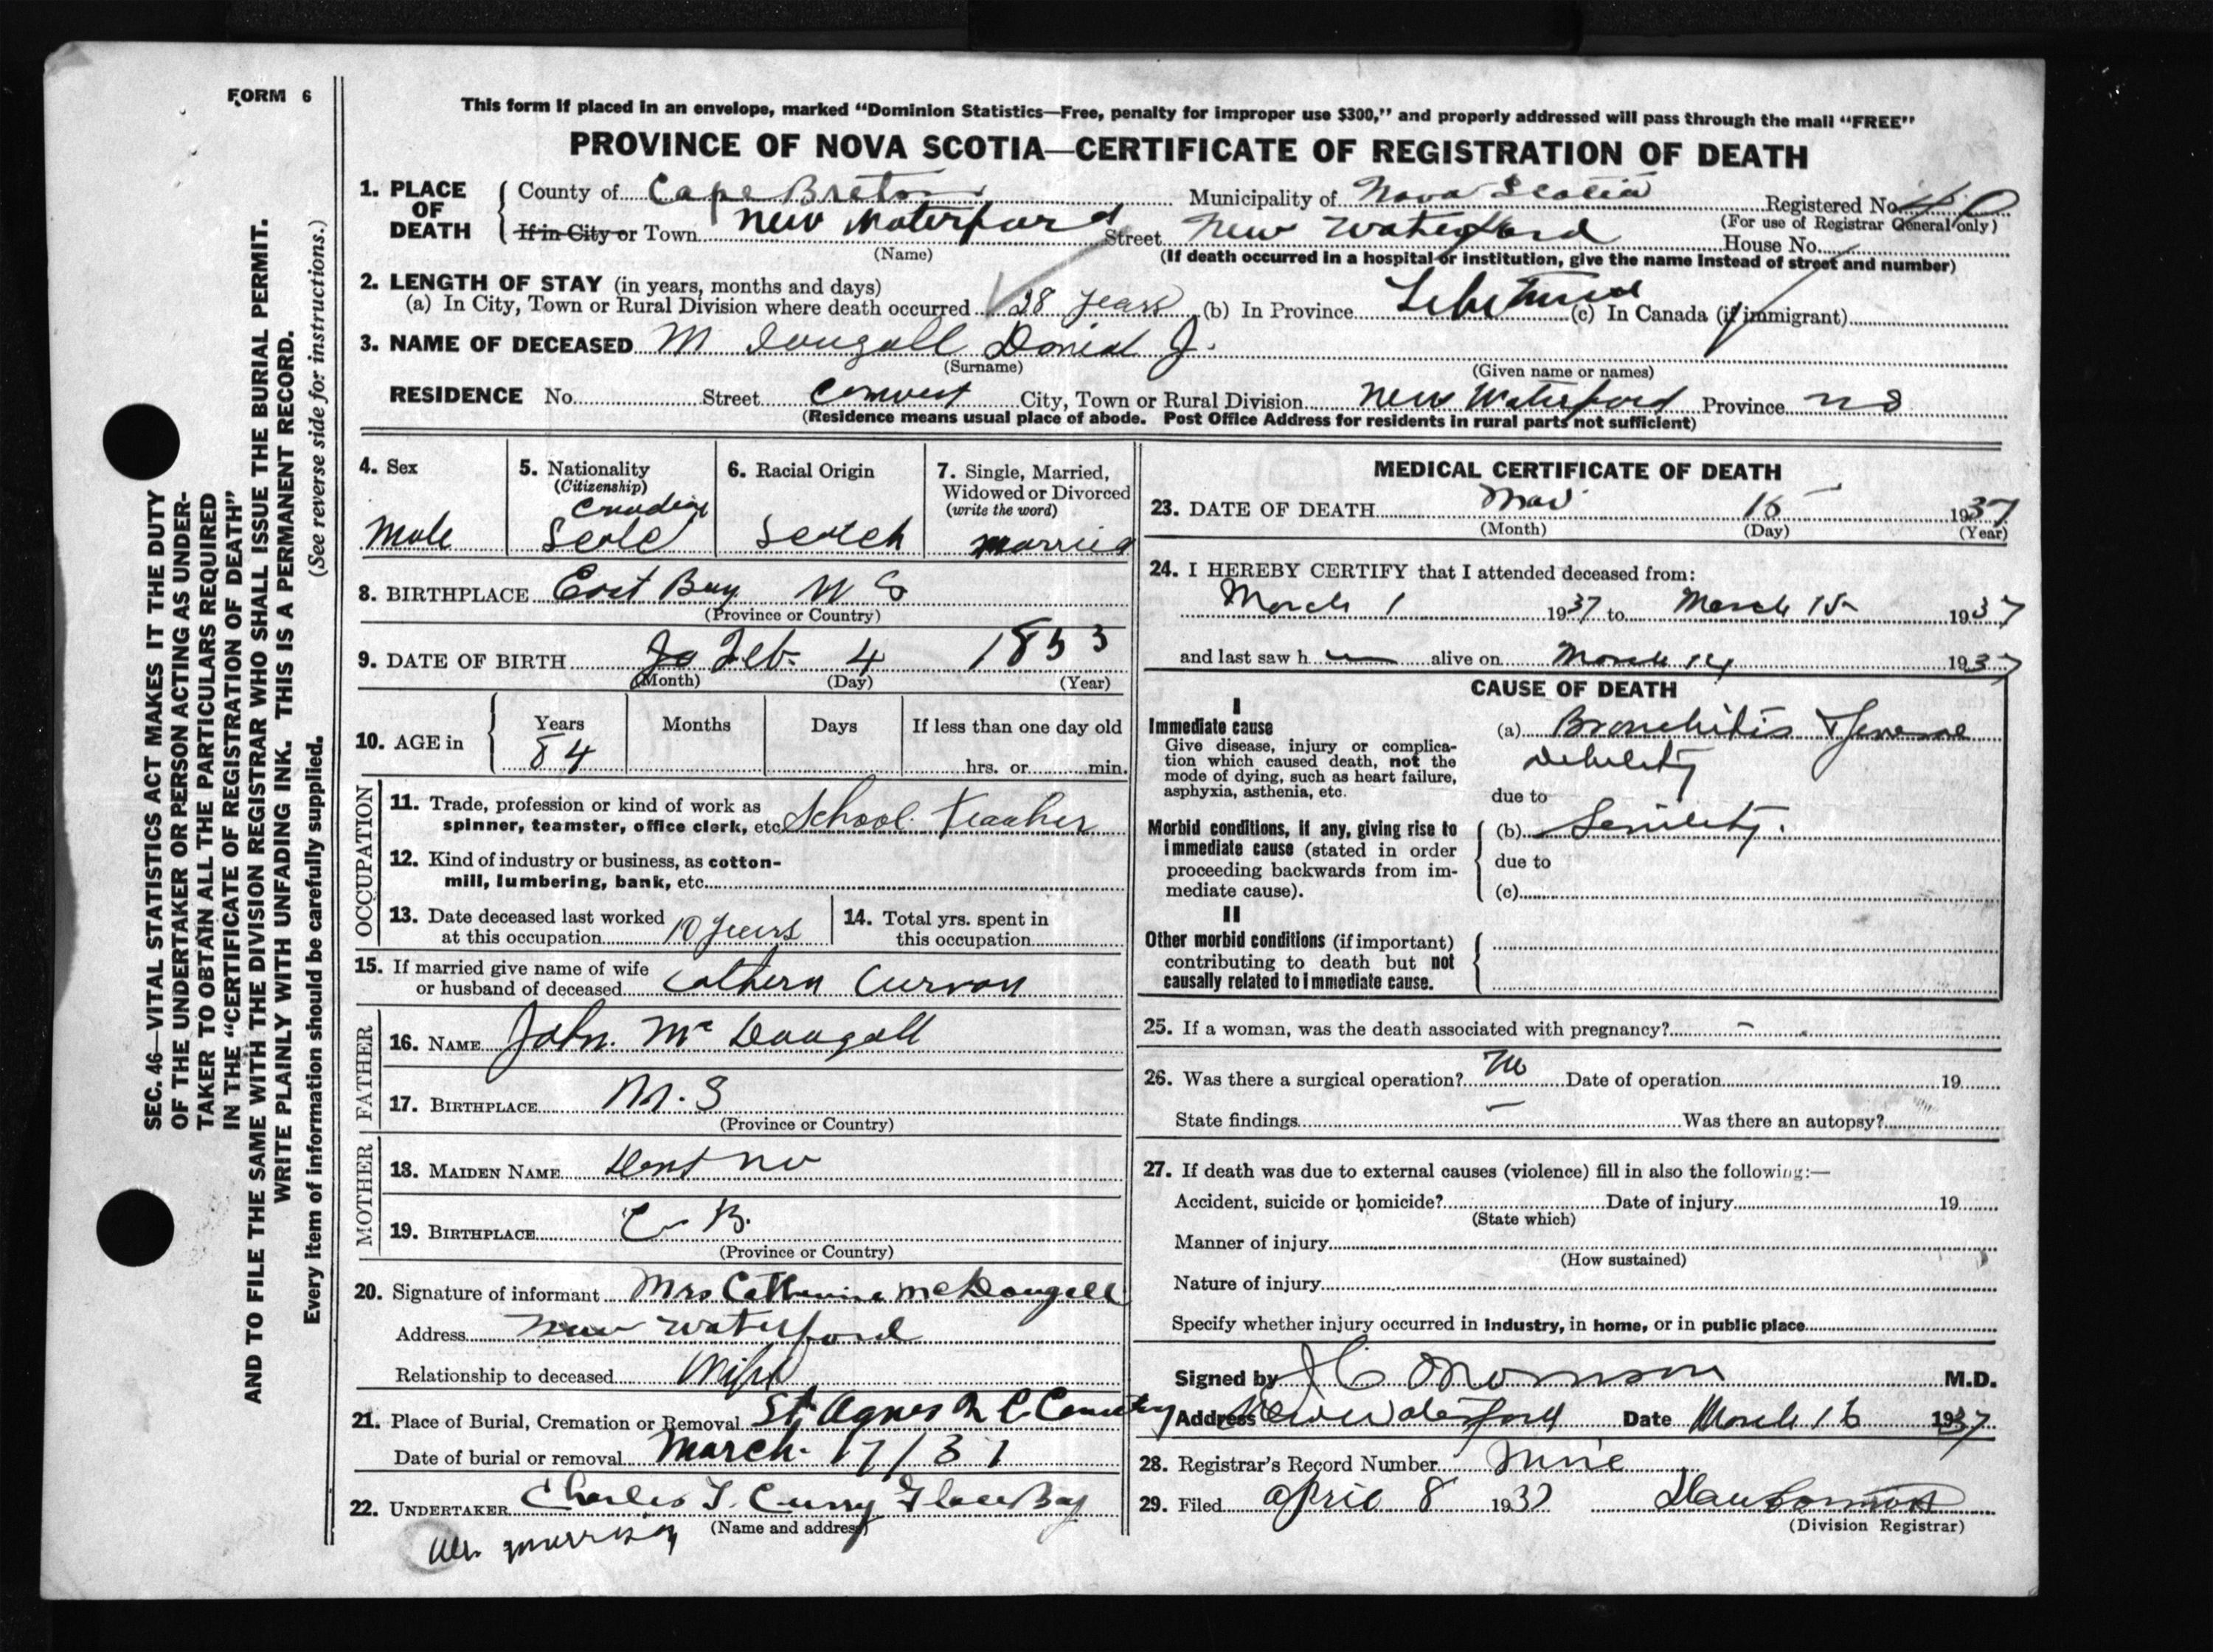 FORM 6
This form if placed in an envelope, marked "Dominion Statistics—Free, penalty for improper use $300," and properly addressed will pass through the mail "FREE"
PROVINCE OF NOVA SCOTIA—CERTIFICATE OF REGISTRATION OF DEATH
1. PLACE OF DEATH
County of Cape Breton Municipality of Nova Scotia Registered No.
(For use of Registrar General only)
If in City or Town New Waterford Street New Waterford House No.
(Name)
(If death occurred in a hospital or institution, give the name instead of street and number)
2. LENGTH OF STAY (in years, months and days)
(a) In City, Town or Rural Division where death occurred 28 years (b) In Province Lifetime (c) In Canada (if immigrant)
3. NAME OF DECEASED Mc Dougall Daniel J.
(Surname) (Given name or names)
RESIDENCE No. Street Convent City, Town or Rural Division New Waterford Province NS
(Residence means usual place of abode. Post Office Address for residents in rural parts not sufficient)
4. Sex
Male
5. Nationality
(Citizenship)
Canadian
6. Racial Origin
Scotch
7. Single, Married, Widowed or Divorced
(write the word)
married
8. BIRTHPLACE East Bay N S
(Province or Country)
9. DATE OF BIRTH Feb. 4 1853
(Month) (Day) (Year)
10. AGE in
Years Months Days If less than one day old
84 hrs. or min.
OCCUPATION
11. Trade, profession or kind of work as
spinner, teamster, office clerk, etc. School Teacher
12. Kind of industry or business, as cotton-
mill, lumbering, bank, etc.
13. Date deceased last worked
at this occupation 10 years
14. Total yrs. spent in
this occupation
15. If married give name of wife
or husband of deceased Cathern Curran
FATHER
16. NAME John Mc Dougall
17. BIRTHPLACE N. S
(Province or Country)
MOTHER
18. MAIDEN NAME
19. BIRTHPLACE C B.
(Province or Country)
20. Signature of informant Mrs Catherine McDougall
Address New Waterford
Relationship to deceased Wife
21. Place of Burial, Cremation or Removal St Agnes R C Cemetery
Date of burial or removal March 17/37
22. UNDERTAKER Charles T. Curry Glace Bay
(Name and address)
Morrison
MEDICAL CERTIFICATE OF DEATH
23. DATE OF DEATH Mar 15 1937
(Month) (Day) (Year)
24. I HEREBY CERTIFY that I attended deceased from:
March 1 1937 to March 15 1937
and last saw h alive on March 14 1937
CAUSE OF DEATH
I
Immediate cause
Give disease, injury or complica-
tion which caused death, not the
mode of dying, such as heart failure,
asphyxia, asthenia, etc.
(a) Bronchitis & General
debility
due to
Morbid conditions, if any, giving rise to
immediate cause (stated in order
proceeding backwards from im-
mediate cause).
(b) Senility.
due to
(c)
II
Other morbid conditions (if important)
contributing to death but not
causally related to immediate cause.
25. If a woman, was the death associated with pregnancy? -
26. Was there a surgical operation? No Date of operation 19
State findings - Was there an autopsy?
27. If death was due to external causes (violence) fill in also the following:—
Accident, suicide or homicide? Date of injury 19
(State which)
Manner of injury
(How sustained)
Nature of injury
Specify whether injury occurred in industry, in home, or in public place
Signed by M.D.
Address New Waterford Date March 16 1937
28. Registrar's Record Number Nine
29. Filed April 8 1937
(Division Registrar)
SEC. 46—VITAL STATISTICS ACT MAKES IT THE DUTY
OF THE UNDERTAKER OR PERSON ACTING AS UNDER-
TAKER TO OBTAIN ALL THE PARTICULARS REQUIRED
IN THE "CERTIFICATE OF REGISTRATION OF DEATH"
AND TO FILE THE SAME WITH THE DIVISION REGISTRAR WHO SHALL ISSUE THE BURIAL PERMIT.
WRITE PLAINLY WITH UNFADING INK. THIS IS A PERMANENT RECORD.
Every item of information should be carefully supplied. (See reverse side for instructions.)